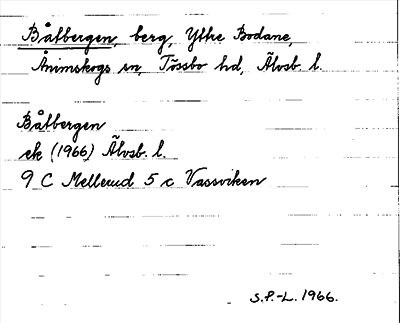 Båtbergen, berg, Yttre Bodane,
Ånimskogs sn, Tössbo hd, Älvsb. l.
Båtbergen
ek (1966) Älvsb. l.
9 C Mellerud 5 c Vassviken
S.F.-L. 1966.